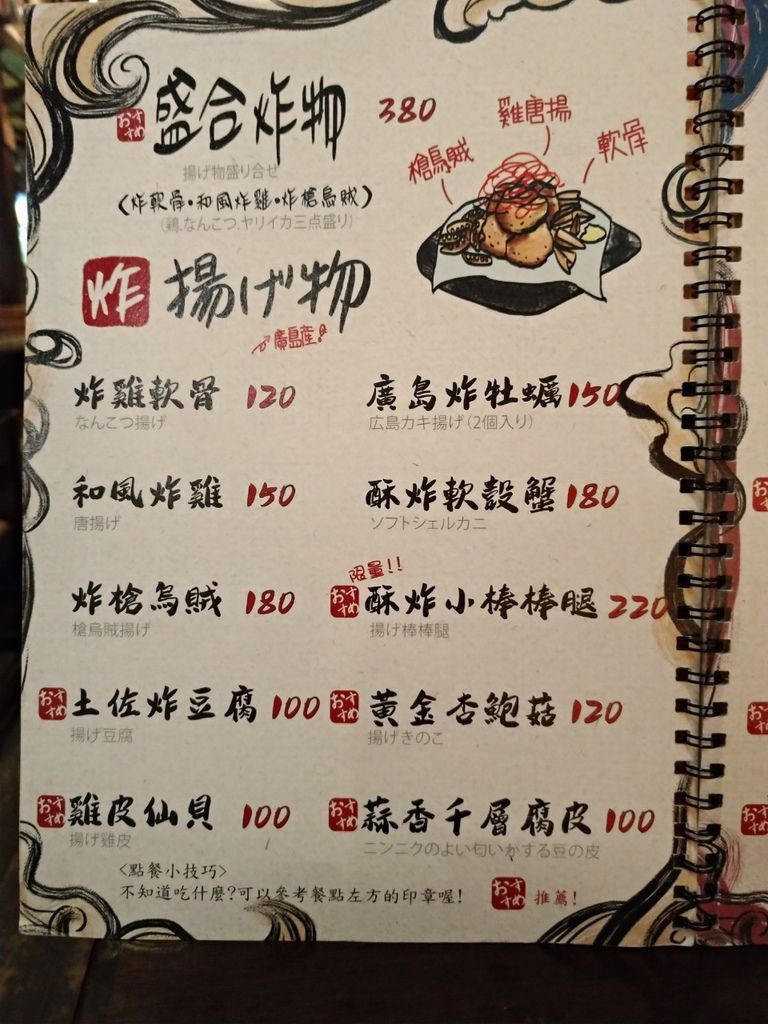 おすすめ 盛合炸物 380
揚げ物盛り合せ
(炸軟骨•和風炸雞•炸槍烏賊)
(鶏、なんこつ、ヤリイカ三点盛り)
雞唐揚
槍烏賊
軟骨
炸 揚げ物
廣島産!
炸雞軟骨 120
なんこつ揚げ
廣島炸牡蠣 150
広島カキ揚げ(2個入り)
和風炸雞 150
唐揚げ
酥炸軟殼蟹 180
ソフトシェルカニ
炸槍烏賊 180
槍烏賊揚げ
限量!!
おすすめ 酥炸小棒棒腿 220
揚げ棒棒腿
おすすめ 土佐炸豆腐 100
揚げ豆腐
おすすめ 黃金杏鮑菇 120
揚げきのこ
おすすめ 雞皮仙貝 100
揚げ雞皮
おすすめ 蒜香千層腐皮 100
ニンニクのよい匂いかする豆の皮
<點餐小技巧>
不知道吃什麼?可以參考餐點左方的印章喔! おすすめ 推薦!